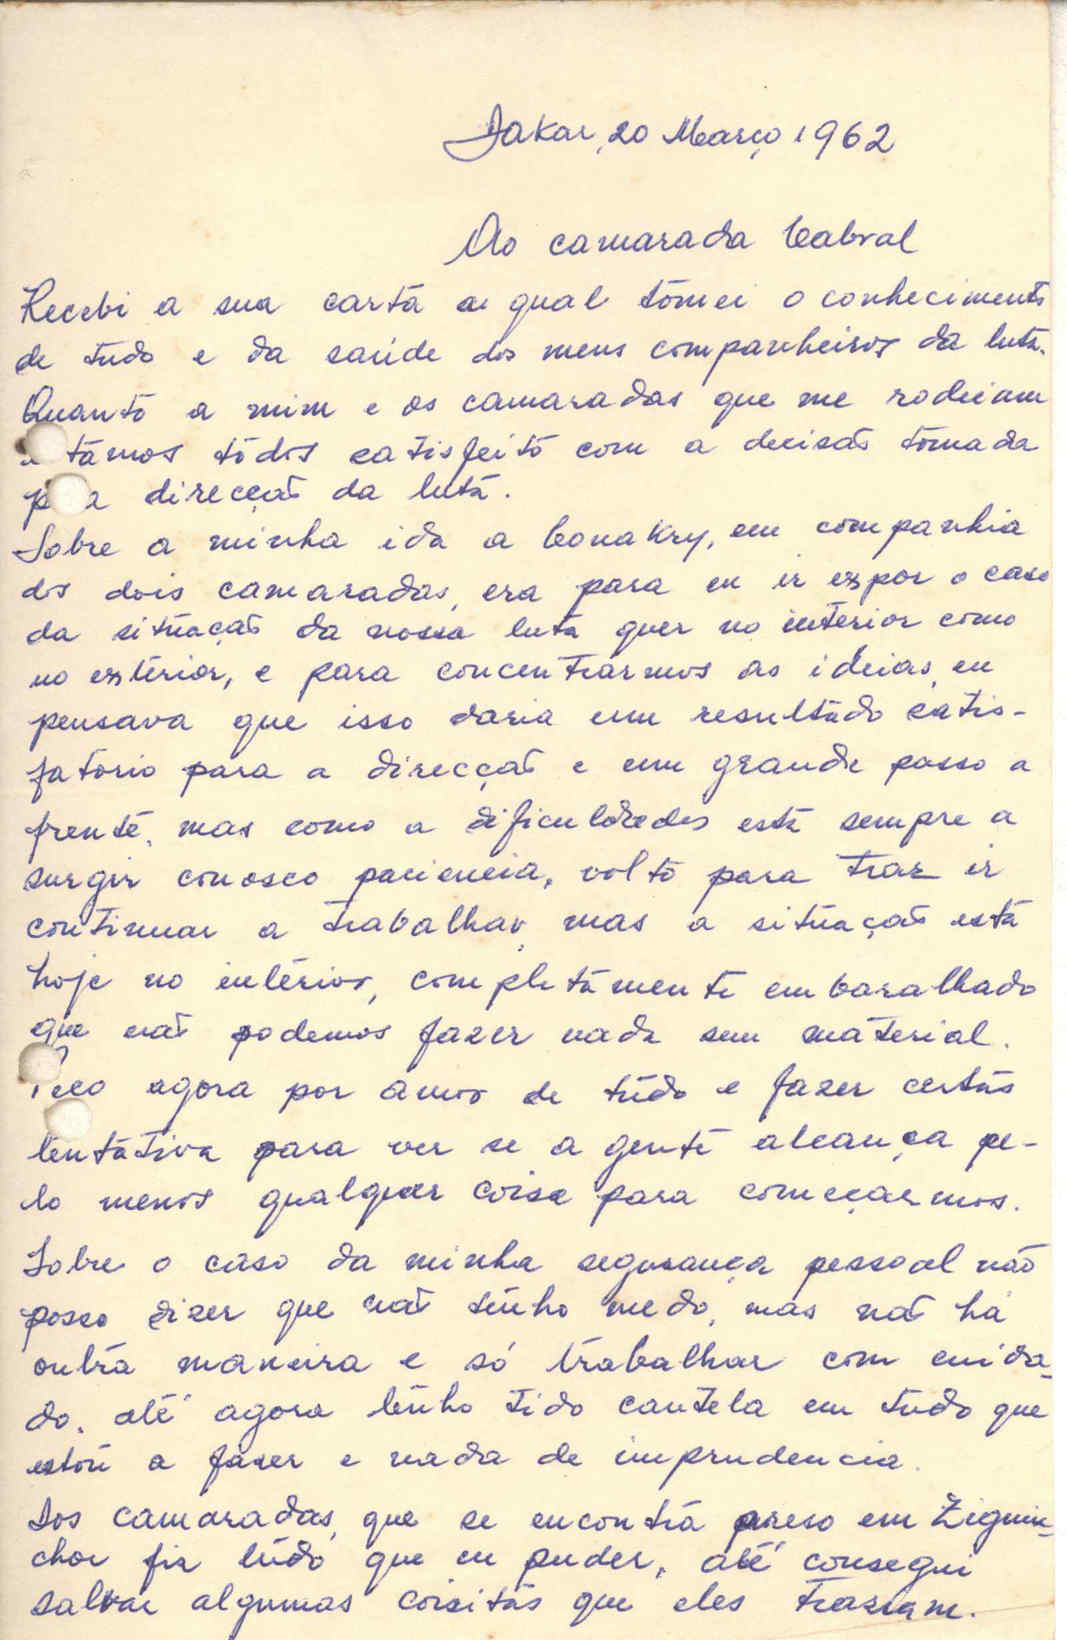 Dakar, 20 Março 1962
Ao camarada Cabral
Recebi a sua carta a qual tomei o conhecimento
de tudo e da saúde dos meus companheiros da luta.
Quanto a mim e os camaradas que me rodeiam
tamos todos satisfeito com a decisão tomada
direcção da luta.
Sobre a minha ida a Conakry, em companhia
dos dois camaradas, era para eu ir expor o caso
da situação da nossa luta quer no interior como
no exterior, e para concentrarmos as ideias, eu
pensava que isso daria um resultado satis-
fatorio para a direcção e um grande passo a
frente, mas como a dificuldades está sempre a
surgir conosco paciencia, volto para traz ir
continuar a trabalhar, mas a situação está
hoje no intérior, completamente embaralhado
que não podemos fazer nada sem material.
Peço agora por amor de tudo e fazer certas
tentativa para ver se a gente alcança pe-
lo menos qualquer coisa para começarmos.
Sobre o caso da minha segurança pessoal não
posso dizer que não tenho medo, mas não há
outra maneira e só trabalhar com cuida-
do, até agora tenho tido cautela em tudo que
estou a fazer e nada de imprudencia.
Dos camaradas, que se encontra preso em Ziguin-
chor fiz tudo que eu puder, até consegui
salvar algumas coisitas que eles traziam.